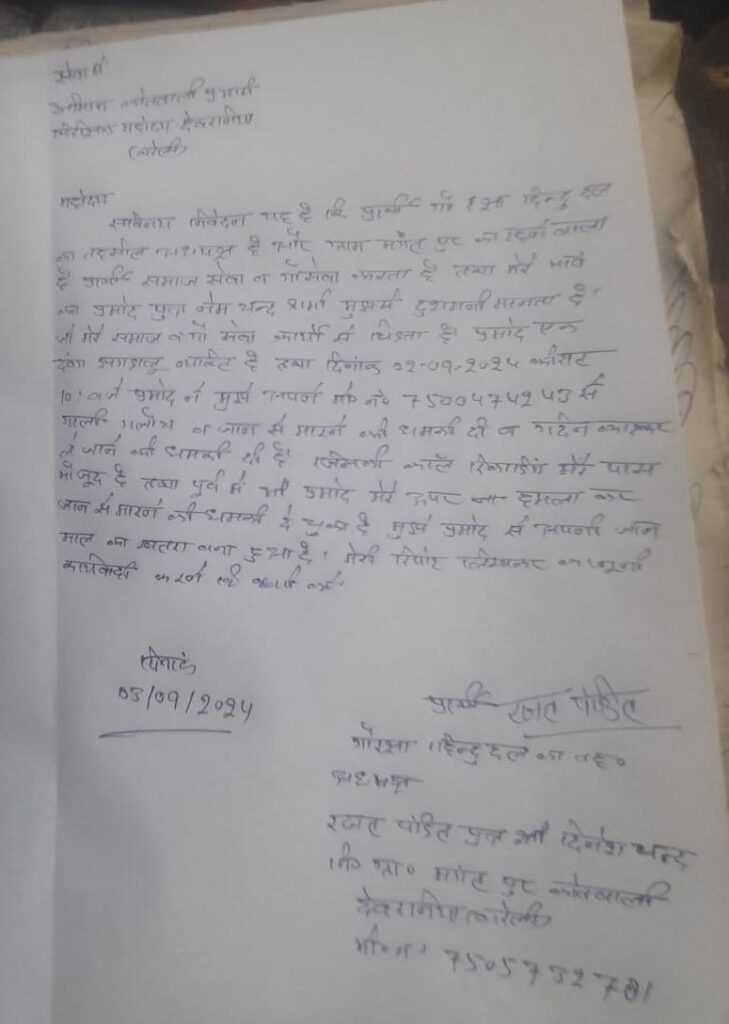 सेवा में
श्रीमान कोतवाली प्रभारी
निरीक्षक महोदय देवरानीया
(बरेली)
महोदय
सविनय निवेदन यह है कि प्रार्थी गौ रक्षा हिन्दु दल
का तहसील अध्यक्ष है और ग्राम का रहने वाला
है प्रार्थी समाज सेवा व गौसेवा करता है तथा मेरे गांव
का प्रमोद पुत्र नेम चन्द शर्मा मुझसे दुशमनी मानता है
जो मेरे समाज व गौ सेवा कार्यो से चिढता है। प्रमोद एक
दबंग झगडालू व्यक्ति है तथा दिनांक 02-09-2024 की रात
10: बजे प्रमोद ने मुझे अपने मो० न० 7500474243 से
गाली गलौच व जान से मारने की धमकी दी व गर्दन काटकर
ले जाने की धमकी दी है। जिसकी कॉल रिकार्डिंग मेरे पास
मौजूद है तथा पूर्व में भी प्रमोद मेरे ऊपर हमला कर
जान से मारने की धमकी दे चुका है मुझे प्रमोद से अपनी जान
माल का खतरा बना हुआ है। मेरी रिपोर्ट लिखकर कानूनी
कार्यवाही करने की कृपा करें।
दिनांक
03/09/2024
प्रार्थी रजत पंडित
गौरक्षा हिन्दु दल का तह०
अध्यक्ष
रजत पंडित पुत्र श्री दिनेश चन्द
नि० ग्रा० पुर कोतवाली
देवरानीया (बरेली)
मो० न० 7505732781